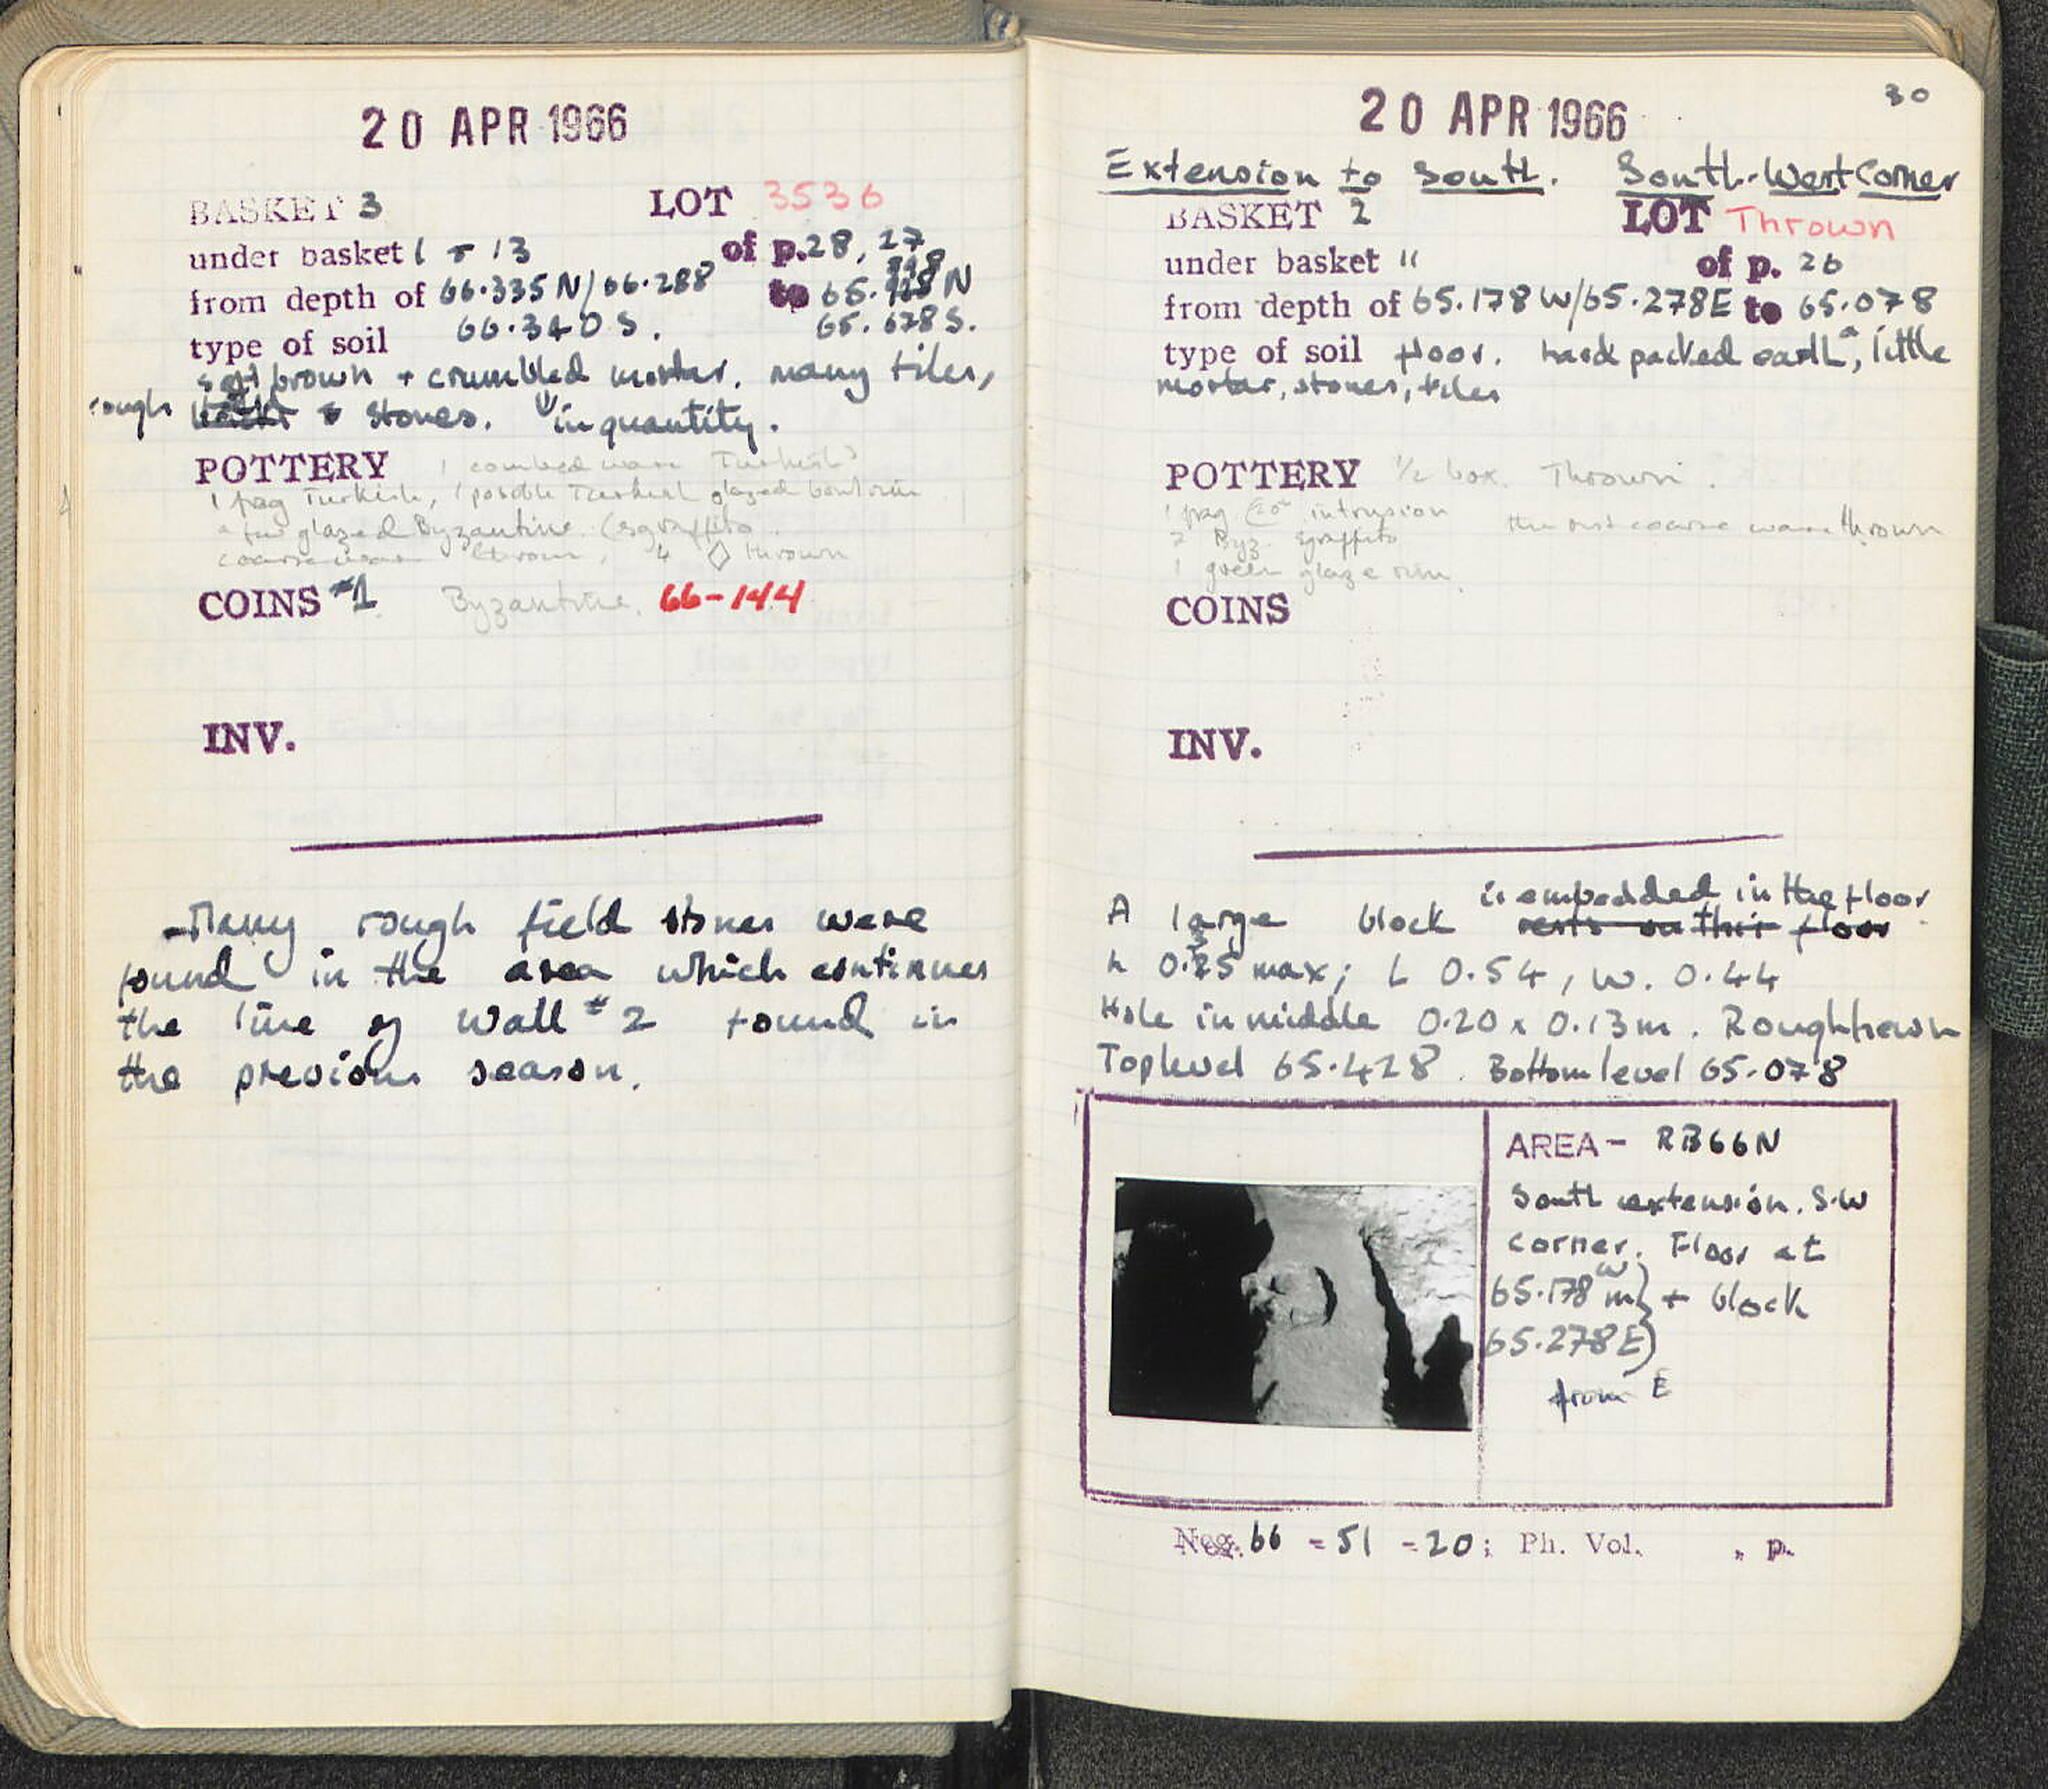 20 APR 1966
BASKET 3 LOT 3536
under basket 1 + 13 of p. 28, 27
from depth of 66.335N/66.288 to 65. N
66.340 S. 65.678 S.
type of soil
soft brown + crumbled mortar. many tiles,
rough stones. in quantity.
POTTERY 1 combed ware Turkish?
1 frag Turkish, 1 possible Turkish glazed bowl rim
a few glazed Byzantine (sgraffito
coarse ware thrown, 4 ◇ thrown
COINS #1 Byzantine. 66-144
INV.
Many rough field stones were
found in the area which continues
the line of wall #2 found in
the previous season.
30
20 APR 1966
Extension to South. South-West Corner
BASKET 2 LOT Thrown
under basket " of p. 26
from depth of 65.178W/65.278E to 65.078
type of soil floor. hard packed earth, a little
mortar, stones, tiles
POTTERY 1/2 box. Thrown.
1 frag intrusion the rest coarse ware thrown
2 Byz. sgraffito
1 green glaze rim.
COINS
INV.
A large block is embedded in the floor
rests on this floor
h 0.35 max; L 0.54, w. 0.44
Hole in middle 0.20 x 0.13m. Rough hewn
Top level 65.428. Bottom level 65.078
AREA- RB66N
South extension. S.W
corner. Floor at
65.178 W m } + block
65.278E)
from E
Neg. 66 - 51 - 20; Ph. Vol. , p.